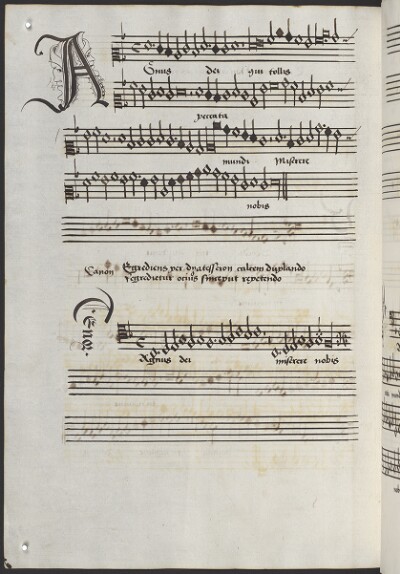 Agnus dei qui tollis
peccata
mundi Miserere
nobis
Canon Egrediens per dyatesseron calcem duplando
Regredietur ocius sinciput repetendo
Tenor
Agnus dei miserere nobis